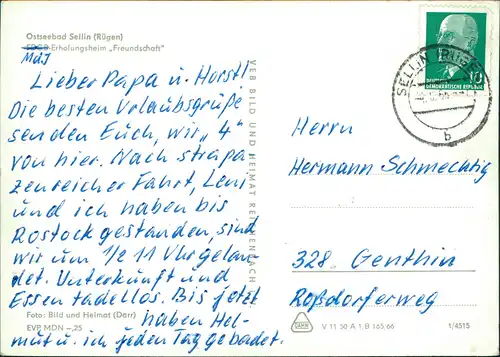 Ostseebad Sellin (Rügen)
FDGB-Erholungsheim „Freundschaft"
MdJ
Lieber Papa u. Horst!
Die besten Urlaubsgrüße
senden Euch, wir „4"
von hier. Nach strapa-
zenreicher Fahrt, Leni
und ich haben bis
Rostock gestanden, sind
wir um 1/2 11 Uhr gelan-
det. Unterkunft und
Essen tadellos. Bis jetzt
haben Hel-
mut u. ich jeden Tag gebadet.
Foto: Bild und Heimat (Darr)
EVP MDN –,25
VEB BILD UND HEIMAT REICHENBACH
10
DEUTSCHE
DEMOKRATISCHE REPUBLIK
SELLIN (RÜGEN)
b
Herrn
Hermann Schmechtig
328. Genthin
Roßdorferweg
V 11 50 A 1 B 165/66
1/4515